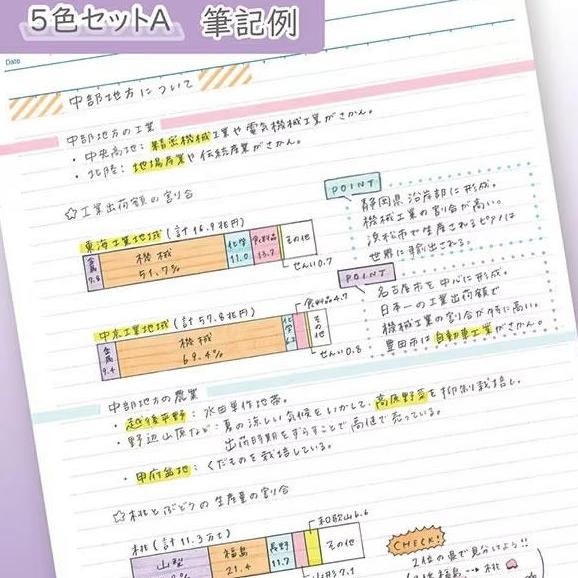 5色セットA 筆記例
Date
中部地方について
中部地方の工業
・中央高地：精密機械工業や電気機械工業がさかん。
・北陸：地場産業や伝統産業がさかん。
☆工業出荷額の割合
東海工業地域(計16.9兆円)
金属 7.8
機械 51.7%
化学 11.0
食料品 13.7
その他
せんい0.7
POINT
静岡県沿岸部に形成。
機械工業の割合が高い。
浜松市で生産されるピアノは
世界に輸出される。
中京工業地域(計57.8兆円)
金属 9.4
機械 69.4%
化学 6.2
食料品4.7
その他
せんい0.8
POINT
名古屋市を中心に形成。
日本一の工業出荷額で
機械工業の割合が特に高い。
豊田市は自動車工業がさかん。
中部地方の農業
・越後平野：水田単作地帯。
・野辺山原など：夏の涼しい気候をいかして、高原野菜を抑制栽培し、
出荷時期をずらすことで高値で売っている。
・甲府盆地：くだものを栽培している。
☆桃とぶどうの生産量の割合
桃(計11.3万t)
山梨
福島 21.4
長野 11.7
和歌山6.6
その他
山形7.1
CHECK!
2位の県で見分けよう!!
福島…→桃